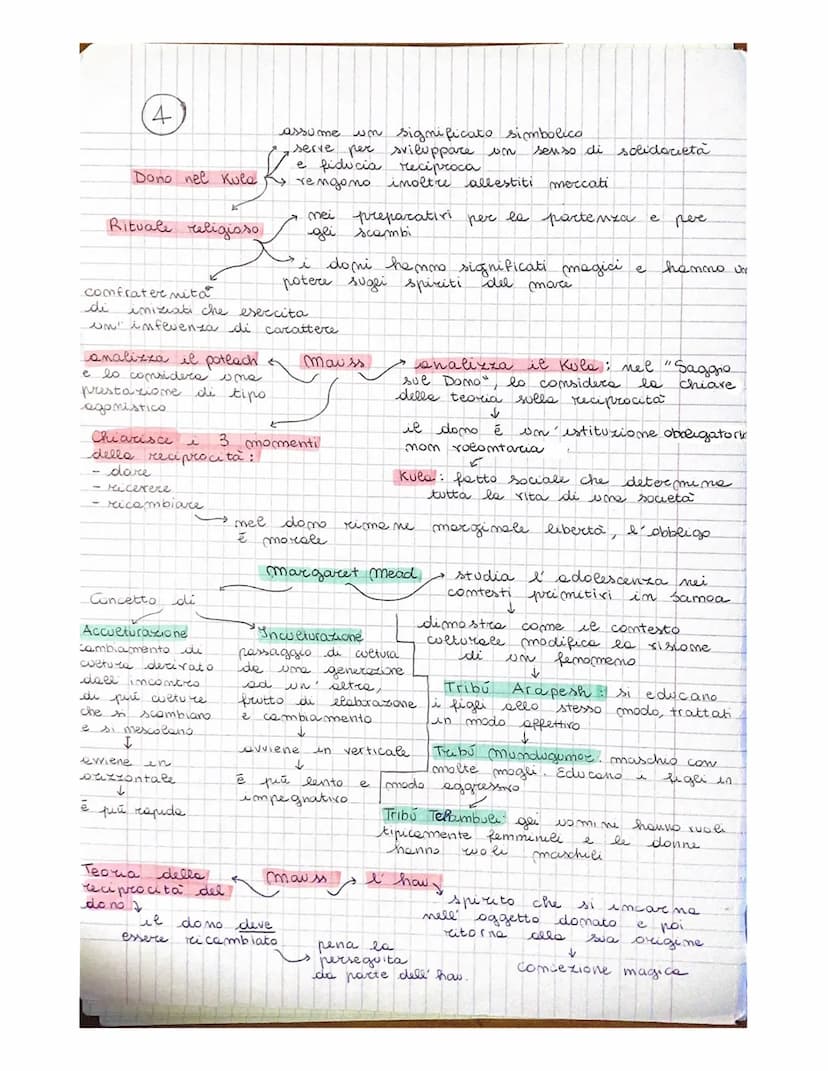 4
assume un significato simbolico
serve per sviluppare un senso di solidarietà
e fiducia reciproca
Dono nel Kula
vengono inoltre allestiti mercati
Rituale religioso
nei preparativi per la partenza e per
gli scambi
i doni hanno significati magici e hanno un
potere sugli spiriti del mare
confraternità
di iniziati che esercita
un' influenza di carattere
analizza il potlach
e lo considera una
prestazione di tipo
agonistico
Mauss
analizza il Kula: nel "Saggio
sul Dono", lo considera la chiave
della teoria sulla reciprocità
il dono è un' istituzione obbligatoria
non volontaria
Kula: fatto sociale che determina
tutta la vita di una società
Chiarisce i 3 momenti
della reciprocità:
- dare
- ricevere
- ricambiare
nel dono rimane marginale libertà, l'obbligo
è morale
Margaret Mead
studia l' adolescenza nei
contesti primitivi in Samoa
dimostra come il contesto
culturale modifica la visione
di un fenomeno
Concetto di
Acculturazione
cambiamento di
cultura derivato
dall' incontro
di più culture
che si scambiano
e si mescolano
avviene in
orizzontale
è più rapida
Inculturazione
passaggio di cultura
da una generazione
ad un' altra,
frutto di elaborazione
e cambiamento
avviene in verticale
è più lento e
impegnativo
Tribú Arapesh: si educano
i figli allo stesso modo, trattati
in modo affettivo
Tribú Mundugumor: maschio con
molte mogli. Educano i figli in
modo aggressivo
Tribú Tchambuli: gli uomini hanno ruoli
tipicamente femminili e le donne
hanno ruoli maschili
Teoria della
reciprocità del
dono
il dono deve
essere ricambiato
pena la
perseguita
da parte dell' hau.
Mauss
l' hau
spirito che si incarna
nell' oggetto donato e poi
ritorna alla sua origine
concezione magica